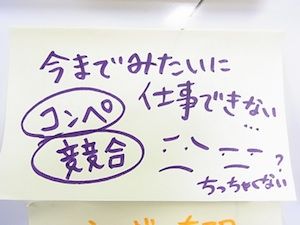 今までみたいに
仕事できない…
コンペ
競合
ちっちゃくない?